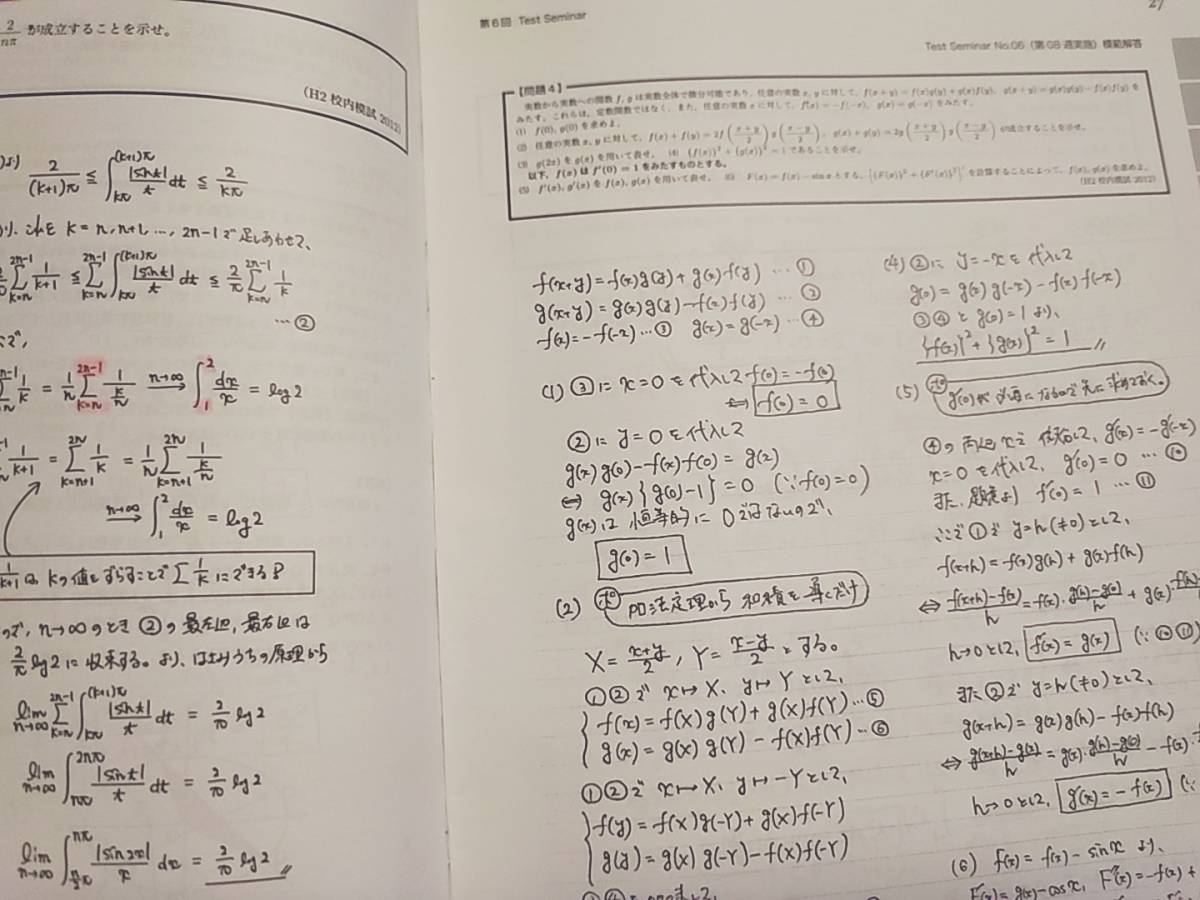 2/nπ が成立することを示せ。
(H2 校内模試 2012)
より 2/((k+1)π) ≦ ∫_{kπ}^{(k+1)π} |sint|/t dt ≦ 2/kπ
これを k = n, n+1, …, 2n-1 で 足しあわせて、
∑_{k=n}^{2n-1} 1/(k+1) ≦ ∑_{k=n}^{2n-1} ∫_{kπ}^{(k+1)π} |sint|/t dt ≦ 2/π ∑_{k=n}^{2n-1} 1/k
…②
1/k = 1/n ∑_{k=n}^{2n-1} 1/(k/n) →(n→∞) ∫_1^2 dx/x = log2
1/(k+1) = ∑_{k=n+1}^{2n} 1/k = 1/n ∑_{k=n+1}^{2n} 1/(k/n)
→(n→∞) ∫_1^2 dx/x = log2
1/(k+1) は kの値をずらすことで ∑ 1/k にできる
n→∞ のとき ②の最左辺, 最右辺は
2/π log2 に収束する。より、はさみうちの原理から
lim_{n→∞} ∑_{k=n}^{2n-1} ∫_{kπ}^{(k+1)π} |sint|/t dt = 2/π log2
lim_{n→∞} ∫_{nπ}^{2nπ} |sint|/t dt = 2/π log2
lim_{n→∞} ∫_{n/2 π}^{nπ} |sin2x|/x dx = 2/π log2 //
第6回 Test Seminar
27
Test Seminar No.06 (第08週実施) 模範解答
【問題4】
実数から実数への関数 f, g は実数全体で微分可能であり、任意の実数 x, y に対して、f(x+y)=f(x)g(y)+g(x)f(y), g(x+y)=g(x)g(y)-f(x)f(y) を
みたす。これらは、定数関数ではなく、また、任意の実数 x に対して、f(x)=-f(-x), g(x)=g(-x) をみたす。
(1) f(0), g(0) を求めよ。
(2) 任意の実数 x, y に対して、f(x)+f(y)=2f((x+y)/2)g((x-y)/2), g(x)+g(y)=2g((x+y)/2)g((x-y)/2) が成立することを示せ。
(3) g(2x) を g(x) を用いて表せ。 (4) {f(x)}²+{g(x)}²=1 であることを示せ。
以下、f(x) は f'(0)=1 をみたすものとする。
(5) f'(x), g'(x) を f(x), g(x) を用いて表せ。 (6) F(x)=f(x)-sin x とする。[{F(x)}²+{F'(x)}²]' を計算することによって、f(x), g(x) を求めよ。
(H2 校内模試 2012)
f(x+y)=f(x)g(y)+g(x)f(y) …①
g(x+y)=g(x)g(y)-f(x)f(y) …②
f(x)=-f(-x) …③ g(x)=g(-x) …④
(1) ③に x=0 を代入して f(0)=-f(0)
⇔ f(0)=0
②に y=0 を代入して
g(x)g(0)-f(x)f(0)=g(x)
⇔ g(x){g(0)-1}=0 (∵f(0)=0)
g(x)は 恒等的に 0ではないので、
g(0)=1
(2) ポ 加法定理から 和積を導くだけ
X=(x+y)/2, Y=(x-y)/2 とする。
①②で x↦X, y↦Y として、
f(x)=f(X)g(Y)+g(X)f(Y) …⑤
g(x)=g(X)g(Y)-f(X)f(Y) …⑥
①②で x↦X, y↦-Y として、
f(y)=f(X)g(-Y)+g(X)f(-Y)
g(y)=g(X)g(-Y)-f(X)f(-Y)
(4) ②に y=-x を代入して
g(0)=g(x)g(-x)-f(x)f(-x)
③④と g(0)=1 より、
{f(x)}²+{g(x)}²=1 //
(5) ポ g'(0)が必要になるので先に求めておく。
④の両辺 xで 微分して、g'(x)=-g'(-x)
x=0 を代入して、g'(0)=0 …⑩
また、題意より f'(0)=1 …⑪
ここで①で y=h(≠0)として、
f(x+h)=f(x)g(h)+g(x)f(h)
⇔ (f(x+h)-f(x))/h = f(x)·(g(h)-g(0))/h + g(x)·
h→0として、f'(x)=g(x) (∵⑩⑪)
また②で y=h(≠0)として、
g(x+h)=g(x)g(h)-f(x)f(h)
⇔ (g(x+h)-g(x))/h = g(x)·(g(h)-g(0))/h - f(x)·
h→0として、g'(x)=-f(x) (∵
(6) F(x)=f(x)-sinx より、
F'(x)=g(x)-cosx, F''(x)=-f(x)+